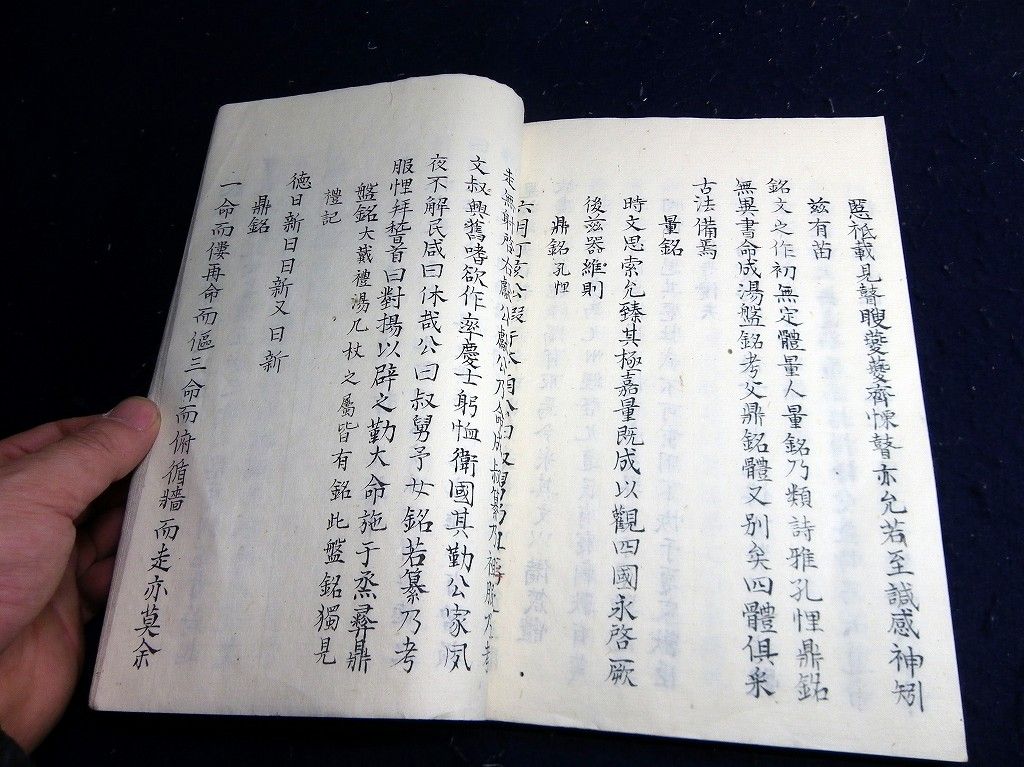 慝祗載見瞽瞍夔夔齊慄瞽亦允若至諴感神矧
茲有苗
銘文之作初無定體量人量銘乃類詩雅孔悝鼎銘
無異書命成湯盤銘考父鼎銘體又別矣四體俱采
古法備焉
量銘
時文思索允臻其極嘉量既成以觀四國永啓厥
後茲器維則
鼎銘孔悝
六月丁亥公假于
走無射啓右獻公獻公乃命成叔纂乃祖
文叔興舊嗜欲作率慶士躬恤衛國其勤公家夙
夜不解民咸曰休哉公曰叔舅予女銘若纂乃考
服悝拜稽首曰對揚以辟之勤大命施于烝彝鼎
盤銘大戴禮湯几杖之屬皆有銘此盤銘獨見
禮記
德日新日日新又日新
鼎銘
一命而僂再命而傴三命而俯循牆而走亦莫余